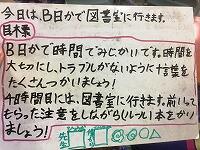 今日は、B日かで図書室に行きます。
目標
B日かで時間でみじかいです。時間を
大切にし、トラブルがないように言葉を
たくさんつかいましょう!
4時間目には、図書室に行きます。前して
もらった注意をしながら(ルール)本をかり
ましょう!
先生